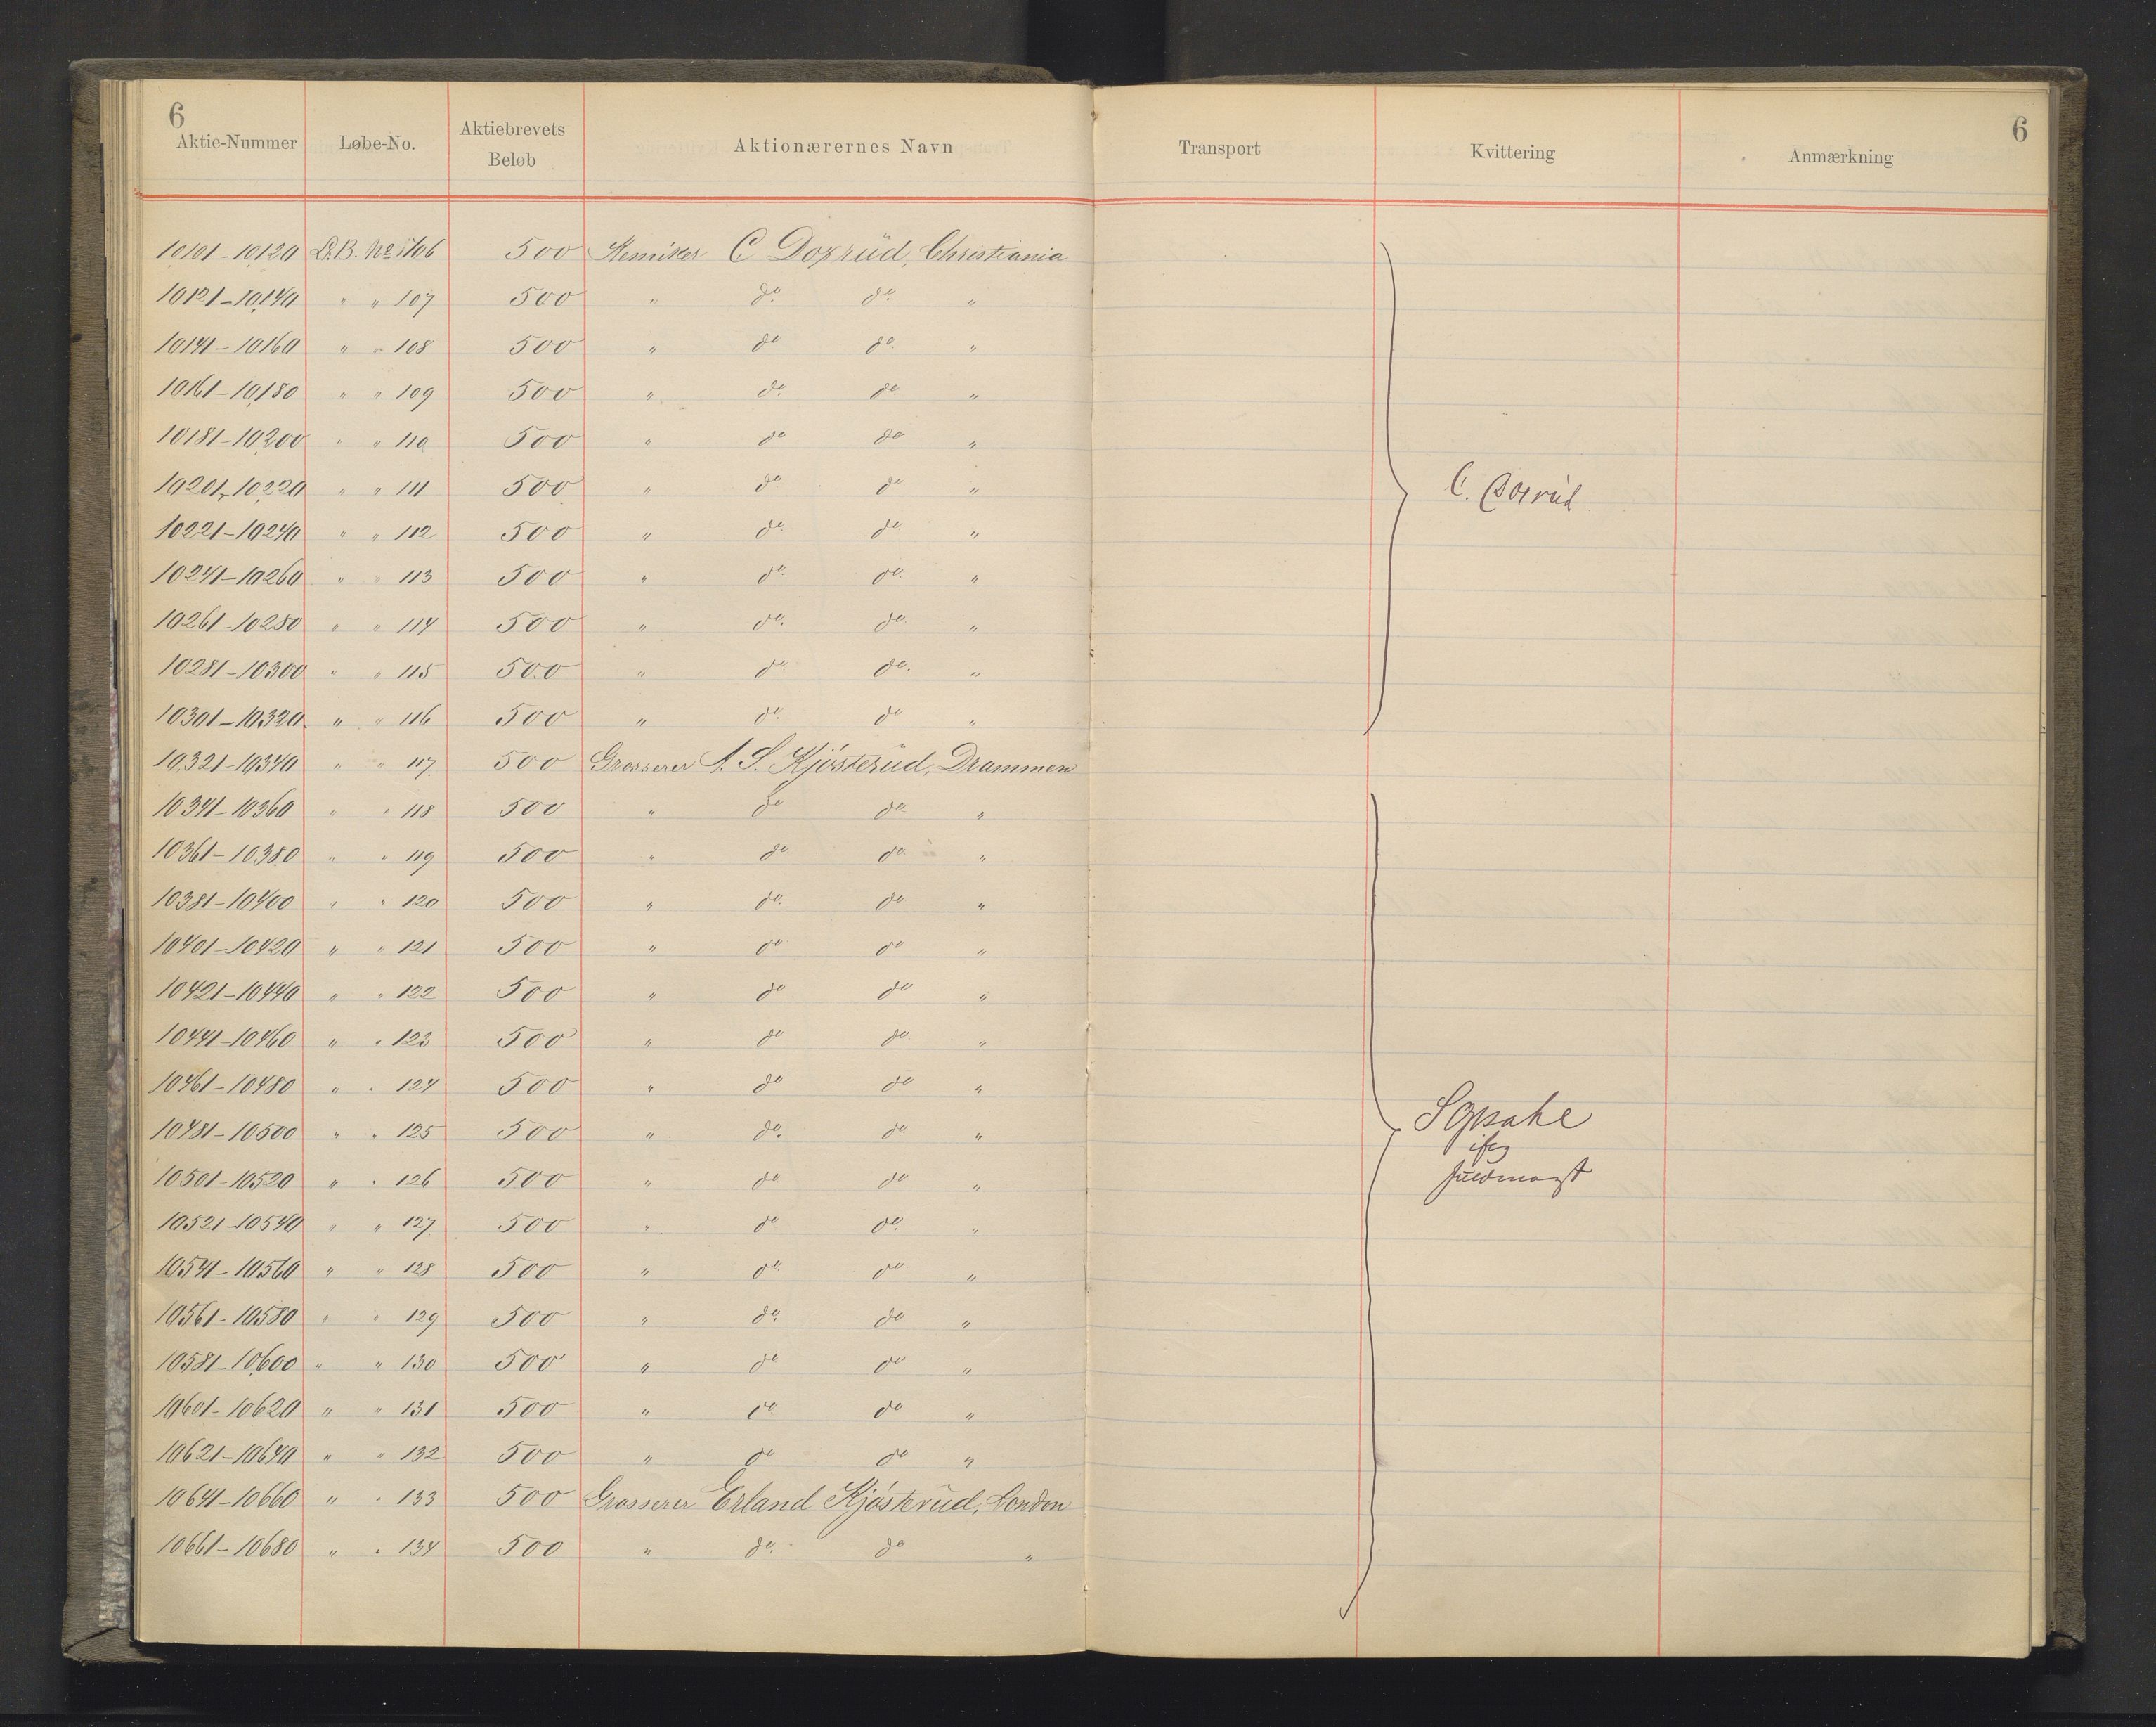 6
Aktie-Nummer Løbe-No. Aktiebrevets Beløb Aktionærernes Navn Transport Kvittering Anmærkning
6
10101-10120 L.B. No 106 500 Kemiker C Doxrud, Christiania
10121-10140 " " 107 500 " do. do. "
10141-10160 " " 108 500 " do do. "
10161-10180 " " 109 500 " do. do "
10181-10200 " " 110 500 " do do "
10201-10220 " " 111 500 " do do "
C. Doxrud
10221-10240 " " 112 500 " do. do. "
10241-10260 " " 113 500 " do. do. "
10261-10280 " " 114 500 " do. do. "
10281-10300 " " 115 500 " do do. "
10301-10320 " " 116 500 " do. do "
10321-10340 " " 117 500 Grosserer A. S. Kjøsterud, Drammen
10341-10360 " " 118 500 " do do. "
10361-10380 " " 119 500 " do do "
10381-10400 " " 120 500 " do. do "
10401-10420 " " 121 500 " do do "
10421-10440 " " 122 500 " do do "
10441-10460 " " 123 500 " do do "
10461-10480 " " 124 500 " do do "
10481-10500 " " 125 500 " do. do "
ifg
fuldmagt
10501-10520 " " 126 500 " do do "
10521-10540 " " 127 500 " do do. "
10541-10560 " " 128 500 " do. do "
10561-10580 " " 129 500 " do. do "
10581-10600 " " 130 500 " do do "
10601-10620 " " 131 500 " do do "
10621-10640 " " 132 500 " do do "
10641-10660 " " 133 500 Grosserer Erland Kjøsterud, London
10661-10680 " " 134 500 " do. do "